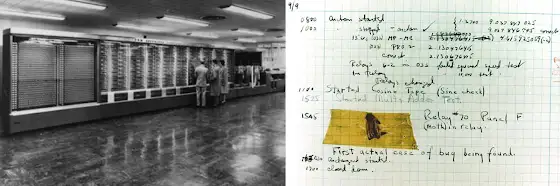 9/9
0800 Antan started 1.2700 9.037 847 025
1000 stopped - antan 9.037 846 795 correct
MP-MC 4.615925059(-2)
033 PRO 2 2.130476415
correct 2.130676415
Relays 6-2 in 033 failed special speed test
in relay test
Relays changed
1100 Started Cosine Tape (Sine check)
1525 Started Multi Adder Test
1545 Relay #70 Panel F
(moth) in relay
First actual case of bug being found.
started.
1700 closed down.